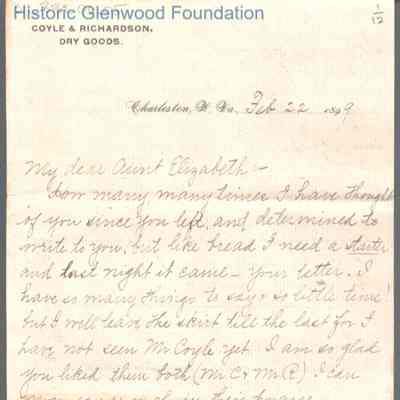 Historic Glenwood Foundation
1/12
COYLE & RICHARDSON,
DRY GOODS.
Charleston, W. Va., Feb 22 1899
My dear Aunt Elizabeth:-
How many many times I have thought
of you since you left, and determined to
write to you, but like bread I need a starter
and last night it came - your letter. I
have so many things to say & so little time!
but I will leave the skirt till the last for I
have not seen Mr Coyle yet. I am so glad
you liked them both (Mr. C & Mr. R) I can